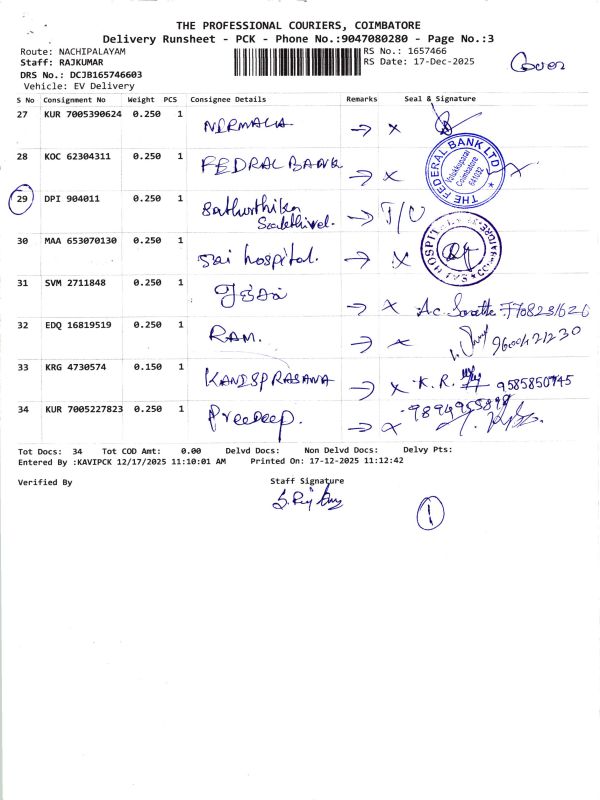 THE PROFESSIONAL COURIERS, COIMBATORE
Delivery Runsheet - PCK - Phone No.:9047080280 - Page No.:3
Route: NACHIPALAYAM RS No.: 1657466
Staff: RAJKUMAR RS Date: 17-Dec-2025
Cover
DRS No.: DCJB165746603
Vehicle: EV Delivery
S No Consignment No Weight PCS Consignee Details Remarks Seal & Signature
27 KUR 7005390624 0.250 1 NIRMALA → x
28 KOC 62304311 0.250 1 FEDRAL BANK → x
THE FEDERAL BANK LTD
Coimbatore
641032
29 DPI 904011 0.250 1 → I/C
30 MAA 653070130 0.250 1 sai hospital. → x
SAI HOSPITAL
31 SVM 2711848 0.250 1 → x A.C.
32 EDQ 16819519 0.250 1 RAM. → x
33 KRG 4730574 0.150 1 KANISPRASANA → x K.R. 9585850745
34 KUR 7005227823 0.250 1 Pradeep. → x
Tot Docs: 34 Tot COD Amt: 0.00 Delvd Docs: Non Delvd Docs: Delvy Pts:
Entered By :KAVIPCK 12/17/2025 11:10:01 AM Printed On: 17-12-2025 11:12:42
Verified By Staff Signature
1